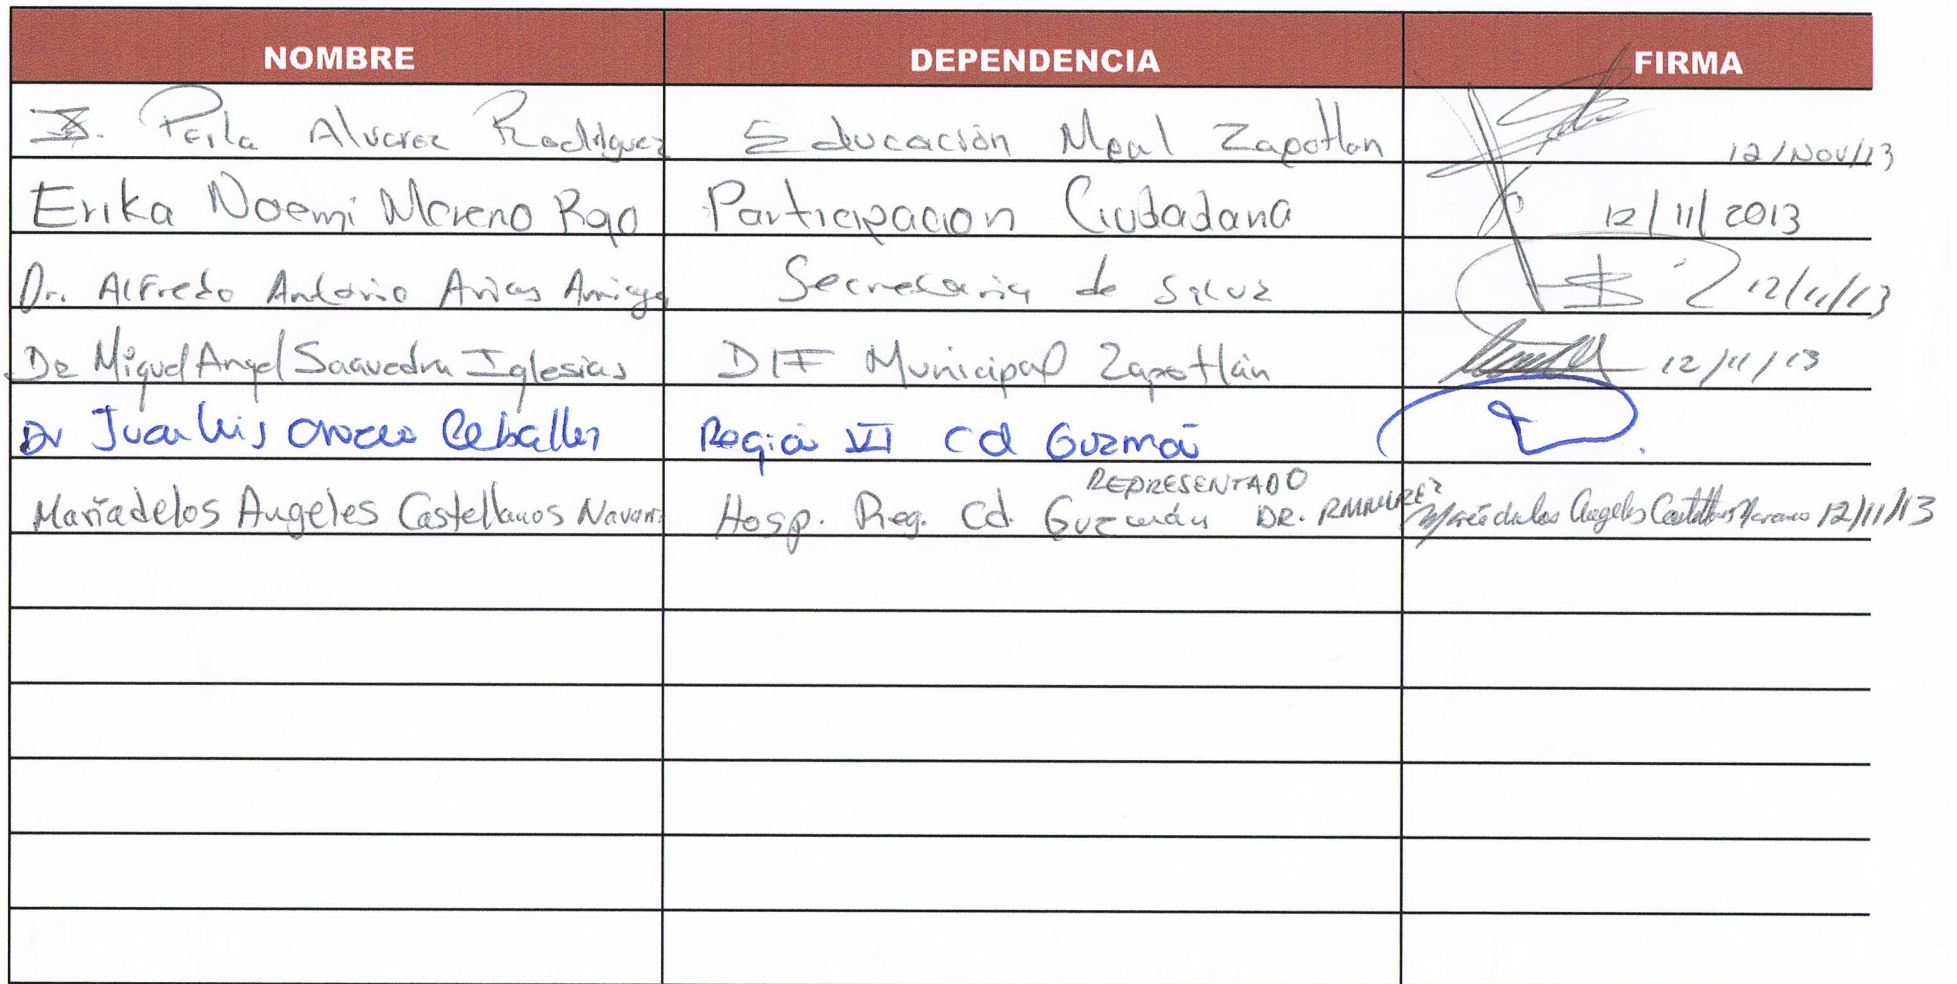 NOMBRE DEPENDENCIA FIRMA
Perla Alvarez Rodriguez Educación Mpal Zapotlan 12/Nov/13
Erika Noemi Moreno Rojo Participacion Ciudadana 12/11/2013
Dr. Alfredo Antonio Arias Secretaria de Salud 12/11/13
Dr Miguel Angel Saavedra Iglesias DIF Municipal Zapotlán 12/11/13
Dr Juan Luis Orozco Ceballos Región VI Cd Guzmán
REPRESENTADO
Maria de los Angeles Castellanos Hosp. Reg. Cd. Guzmán DR. RAMIREZ Maria de los Angeles 12/11/13